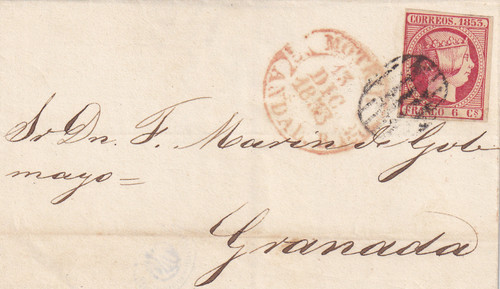 CORREOS. 1853.
FRANCO 6 CS
MOT
13
DIC
1853
ANDAL
Sr Dn. F. Marin de Gob
mayo=
Granada